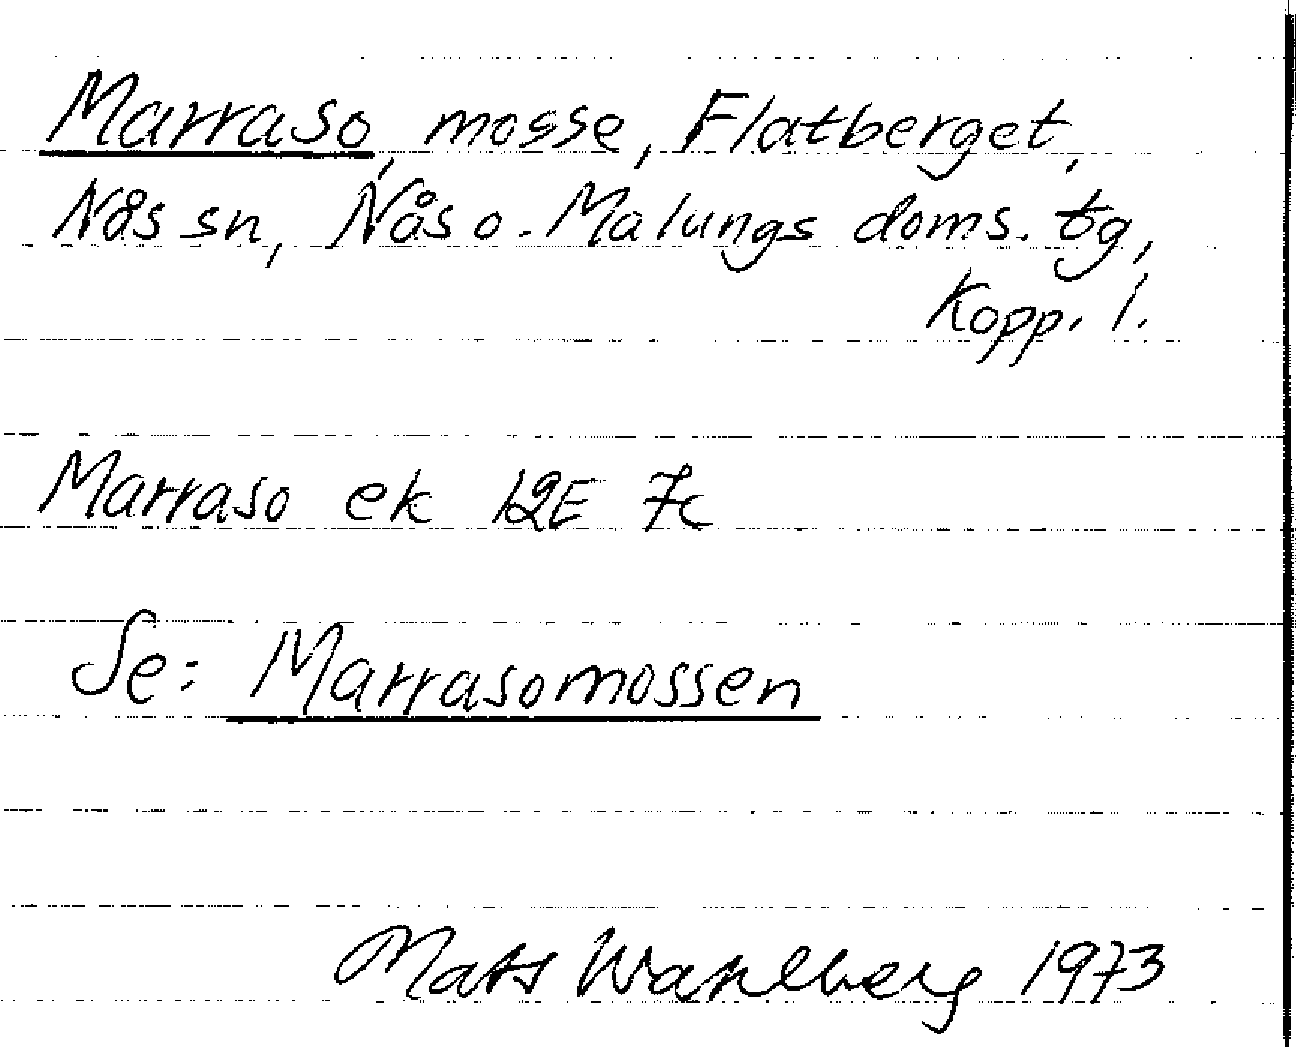 Marraso, mosse, Flatberget,
Nås sn, Nås o. Malungs doms. tg,
Kopp. l.
Marraso ek 12E 7c
Se: Marrasomossen
Mats Wahlberg 1973